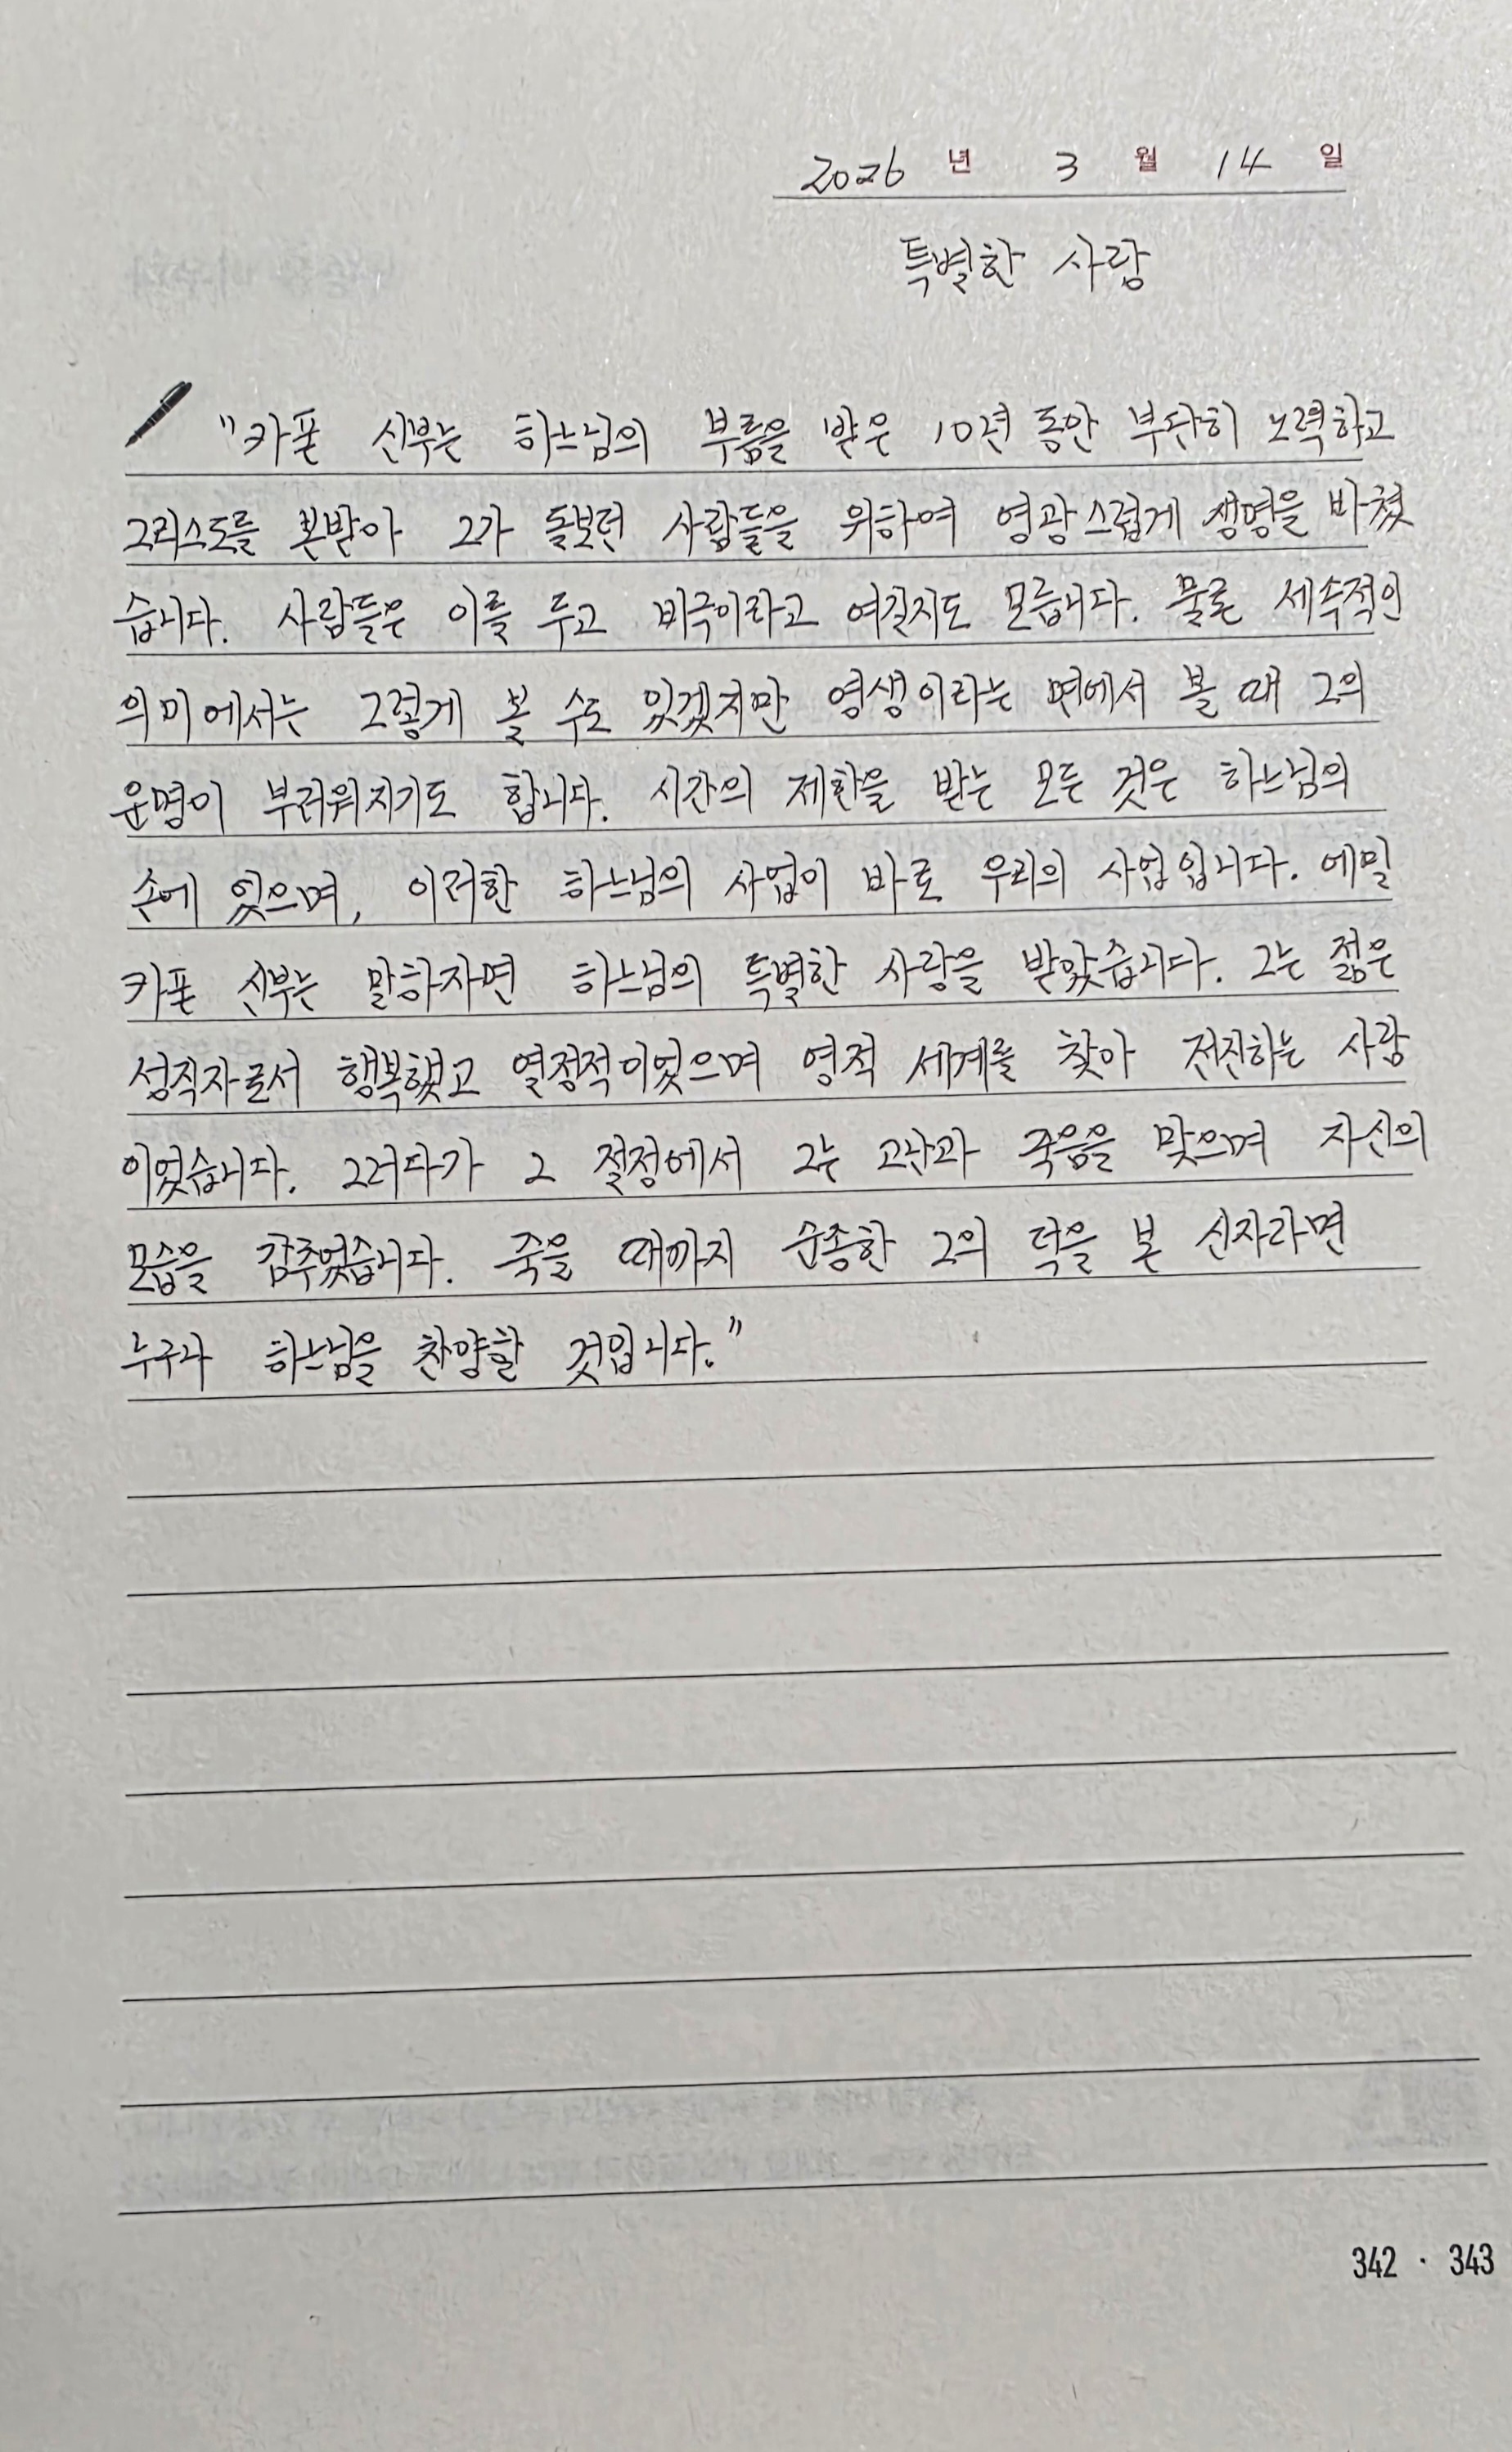 2026 년 3 월 14 일
특별한 사랑
"카폰 신부는 하느님의 부름을 받은 10년 동안 부단히 노력하고
그리스도를 본받아 그가 돌보던 사람들을 위하여 영광스럽게 생명을 바쳤
습니다. 사람들은 이를 두고 비극이라고 여길지도 모릅니다. 물론 세속적인
의미에서는 그렇게 볼 수도 있겠지만 영생이라는 면에서 볼 때 그의
운명이 부러워지기도 합니다. 시간의 제한을 받는 모든 것은 하느님의
손에 있으며, 이러한 하느님의 사업이 바로 우리의 사업입니다. 에밀
카폰 신부는 말하자면 하느님의 특별한 사랑을 받았습니다. 그는 젊은
성직자로서 행복했고 열정적이었으며 영적 세계를 찾아 전진하는 사람
이었습니다. 그러다가 그 절정에서 그는 고난과 죽음을 맞으며 자신의
모습을 감추었습니다. 죽을 때까지 순종한 그의 덕을 본 신자라면
누구나 하느님을 찬양할 것입니다."
342 · 343